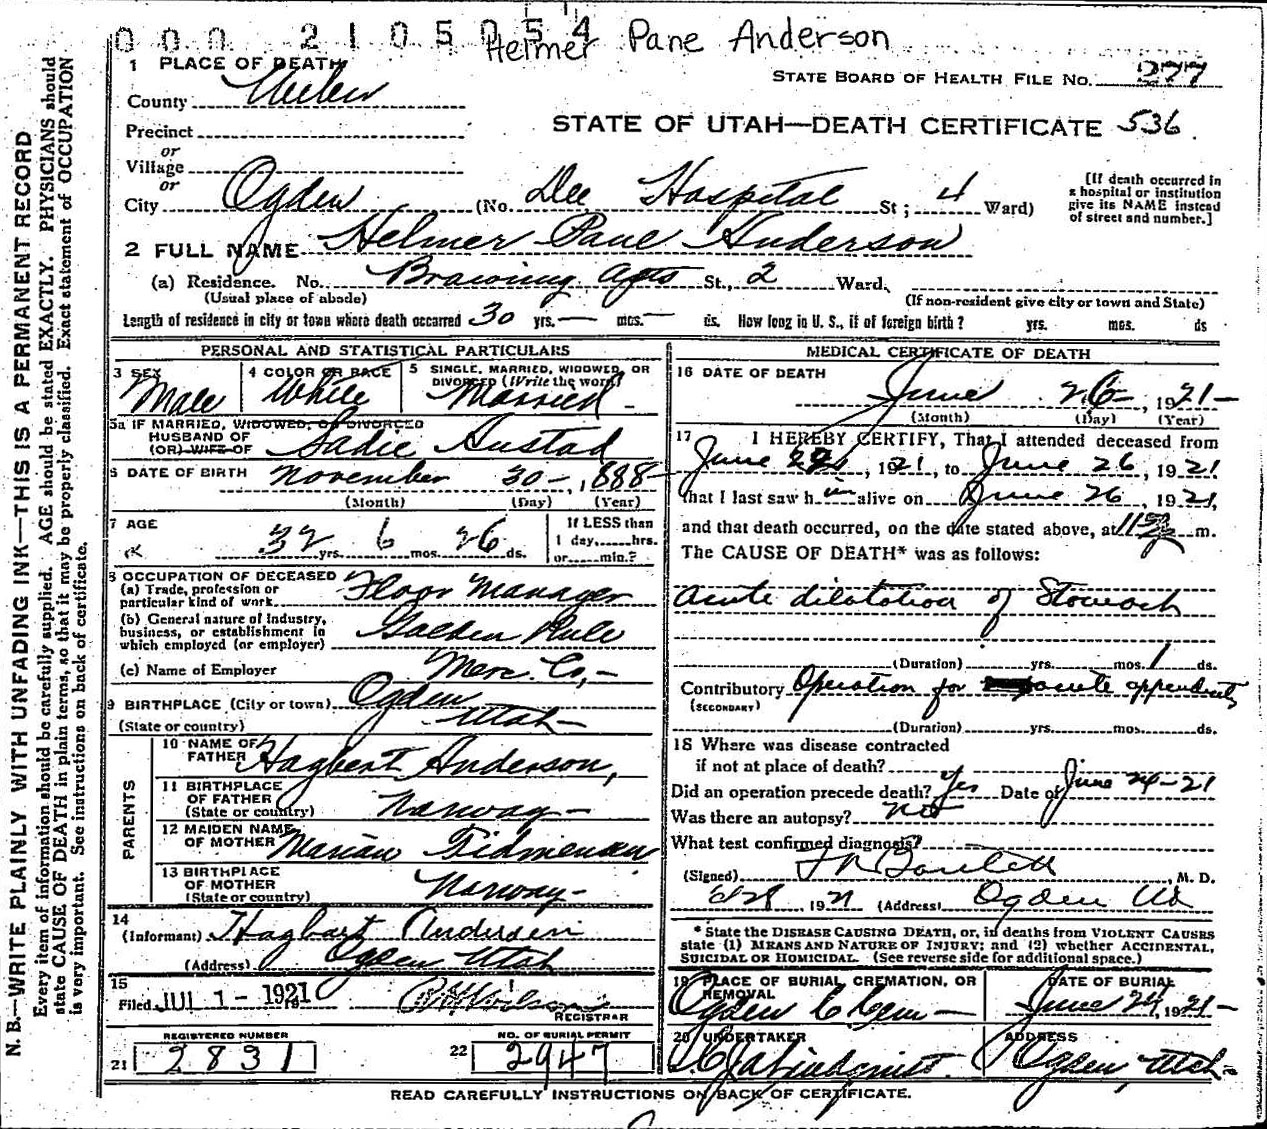 000 2105054
Helmer Pane Anderson
1 PLACE OF DEATH
STATE BOARD OF HEALTH FILE NO. 277
County Weber
STATE OF UTAH—DEATH CERTIFICATE 536
Precinct
or
Village
or
City Ogden (No. Dee Hospital St; 4 Ward)
[If death occurred in
a hospital or institution
give its NAME instead
of street and number.]
2 FULL NAME Helmer Pane Anderson
(a) Residence. No. Browning Apts St., 2 Ward.
(Usual place of abode) (If non-resident give city or town and State)
Length of residence in city or town where death occurred 30 yrs. — mos. — ds. How long in U. S., if of foreign birth? yrs. mos. ds
PERSONAL AND STATISTICAL PARTICULARS
3 SEX Male
4 COLOR OR RACE White
5 SINGLE, MARRIED, WIDOWED, OR
DIVORCED (Write the word)
Married
5a IF MARRIED, WIDOWED, OR DIVORCED
HUSBAND OF
(OR) WIFE OF Sadie Austad
6 DATE OF BIRTH November 30 —, 1888
(Month) (Day) (Year)
7 AGE
32 yrs. 6 mos. 26 ds.
If LESS than
1 day,......hrs.
or......min.?
8 OCCUPATION OF DECEASED
(a) Trade, profession or
particular kind of work Floor Manager
(b) General nature of industry,
business, or establishment in
which employed (or employer) Golden Rule
(c) Name of Employer Merc. Co,—
9 BIRTHPLACE (City or town) Ogden
(State or country) Utah—
PARENTS
10 NAME OF
FATHER Hagbert Anderson,
11 BIRTHPLACE
OF FATHER
(State or country) Norway—
12 MAIDEN NAME
OF MOTHER Marian
13 BIRTHPLACE
OF MOTHER
(State or country) Norway—
14
(Informant) Hagbart Andersen
(Address) Ogden Utah
15
Filed JUL 1 - 1921
REGISTRAR
REGISTERED NUMBER
21 2831
NO. OF BURIAL PERMIT
22 2947
MEDICAL CERTIFICATE OF DEATH
16 DATE OF DEATH
June 26, 1921—
(Month) (Day) (Year)
17 I HEREBY CERTIFY, That I attended deceased from
June, 1921, to June 26, 1921
that I last saw him alive on June 26, 1921,
and that death occurred, on the date stated above, at m.
The CAUSE OF DEATH* was as follows:
acute dilatation of Stomach
(Duration) yrs. mos. 1 ds.
Contributory Operation for acute appendicitis
(SECONDARY)
(Duration) yrs. mos. ds.
18 Where was disease contracted
if not at place of death?
Did an operation precede death? Yes Date of June 24-21
Was there an autopsy? No
What test confirmed diagnosis?
(Signed) M. D.
6/28, 1921 (Address) Ogden Ut
* State the DISEASE CAUSING DEATH, or, in deaths from VIOLENT CAUSES
state (1) MEANS AND NATURE OF INJURY; and (2) whether ACCIDENTAL,
SUICIDAL OR HOMICIDAL. (See reverse side for additional space.)
19 PLACE OF BURIAL CREMATION, OR
REMOVAL
Ogden C Cem—
DATE OF BURIAL
June, 1921—
20 UNDERTAKER
Lindquist
ADDRESS
Ogden, Utah
READ CAREFULLY INSTRUCTIONS ON BACK OF CERTIFICATE.
N. B.—WRITE PLAINLY WITH UNFADING INK—THIS IS A PERMANENT RECORD
Every item of information should be carefully supplied. AGE should be stated EXACTLY. PHYSICIANS should
state CAUSE OF DEATH in plain terms, so that it may be properly classified. Exact statement of OCCUPATION
is very important. See instructions on back of certificate.